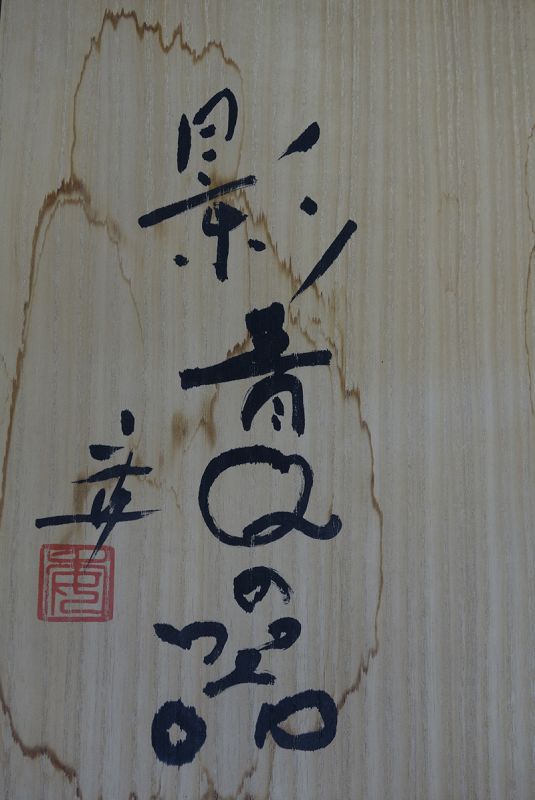 影青Qの器